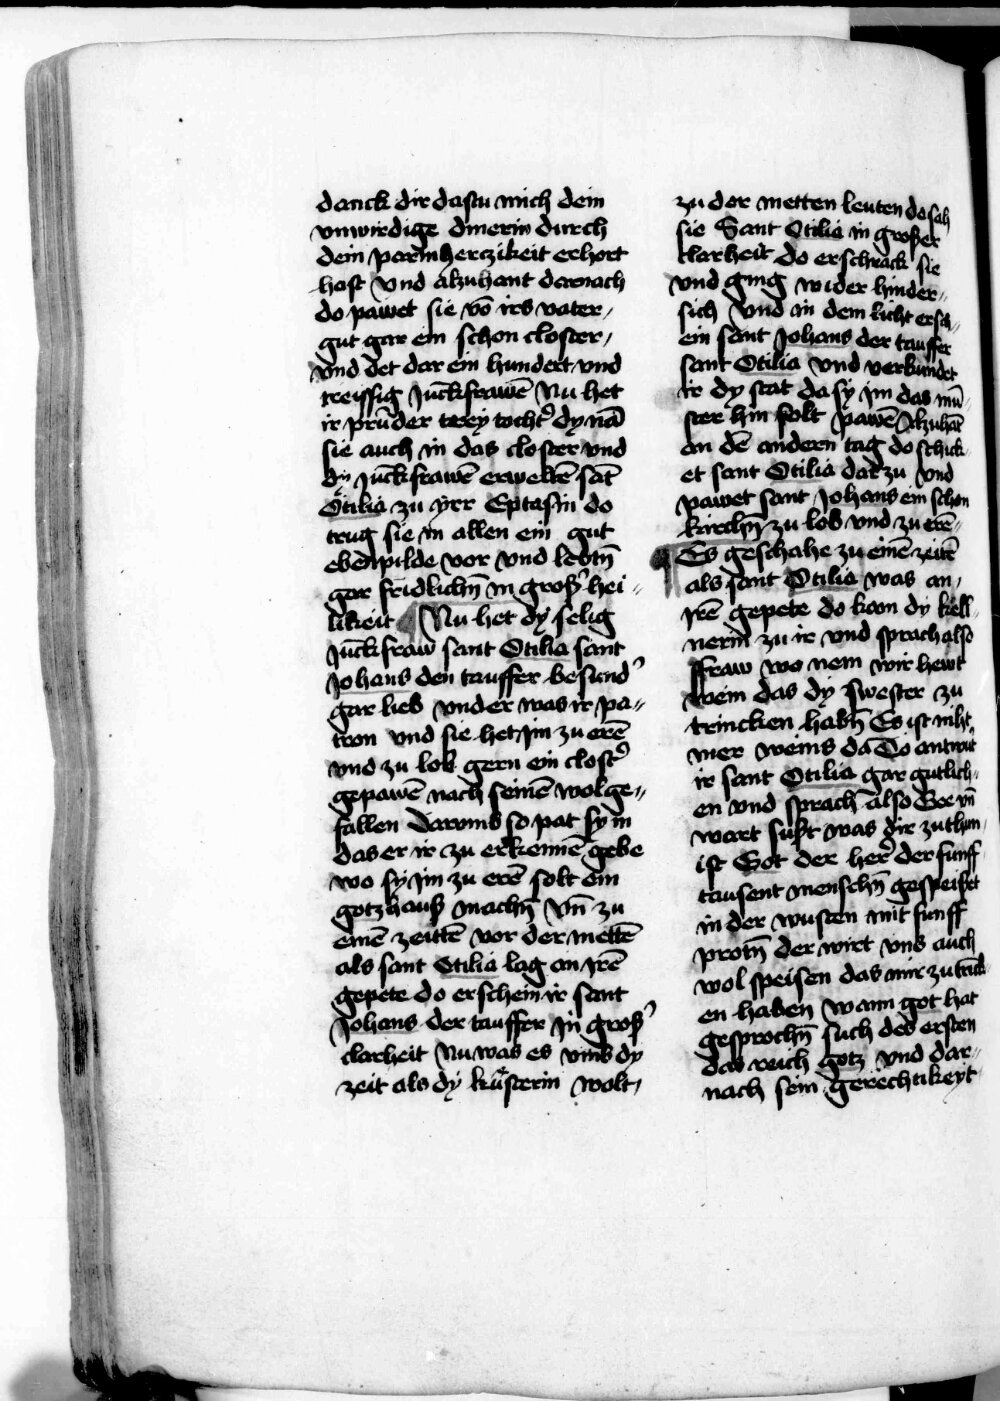 danck dir dastu mich dein
vnwirdige dinerin durch
dein parmherczikeit erhort
hast Vnd alzuhant darnach
do pawet sie vō irs vater,
gut gar ein schon closter,
vnd det dar ein hundert vnd
treissig Juckfrawē Nu het
ir prud der trey tocht' dy nā
sie auch in das closter vnd
dy Juckfrawē erweltē sāt
Otilia zu yrr Eptasin do
trug sie in allen ein gut
ebenpilde vor vnd lebtn̄
gar fridlichn̄ in groß' hei„
likeit Nu het dy selig
Juckfraw sant Otilia sant
Johans den tauffer besund'
gar lieb vnder was ir pa„
tron vnd sie het Jm zu erē
vnd zu lob gern ein clost'
gepawē nach seinē wolge„
fallen Darvmb so pat sy in
das er ir zu erkennē gebe
wo sy Jm zu erē solt ein
gotzhauß machn̄ Vn̄ zu
einē zeittē vor der mettē
als sant Otilia lag an Jrē
gepete do erschein ir sant
Johans der tauffer Jn groß'
clarheit Nu was es vmb dy
zeit als dy kusterin wolt,
zu der metten leuten do sah
sie Sant Otilia in großer
klarheit do erschrack sie
vnd ging wider hinder„
sich Vnd in dem licht ersch„
ein sant Johans der tauffer
sant Otilia vnd verkundet
ir dy stat da sy Jm das mū„
ster hin solt pawē Alzuhāt
an dē andern tag do schick„
et sant Otilia dar zu Vnd
pawet sant Johans ein schon
kirchn̄ zu lob vnd zu erē„
Es geschahe zu einē zeitē
als sant Otilia was an,
Jrē gepete do kom dy kell„
nerin zu ir vnd sprach also
ffraw wo nem wir hewt
wein das dy swester zu
trincken habn̄ Es ist niht
mer weins da Do antwut
ir sant Otilia gar gutlich„
en vnd sprach also Gee vn̄
wart sust was dir zu thun
ist Got der her' der funff
tausent menschn̄ gespeiset
in der wusten mit funff
protn̄ der wirt vns auch
wol speisen das wir zu trinck„
en haben Wann got hat
gesprochn̄ such des ersten
das reich gotz vnd dar„
nach sein gerechtikeyt